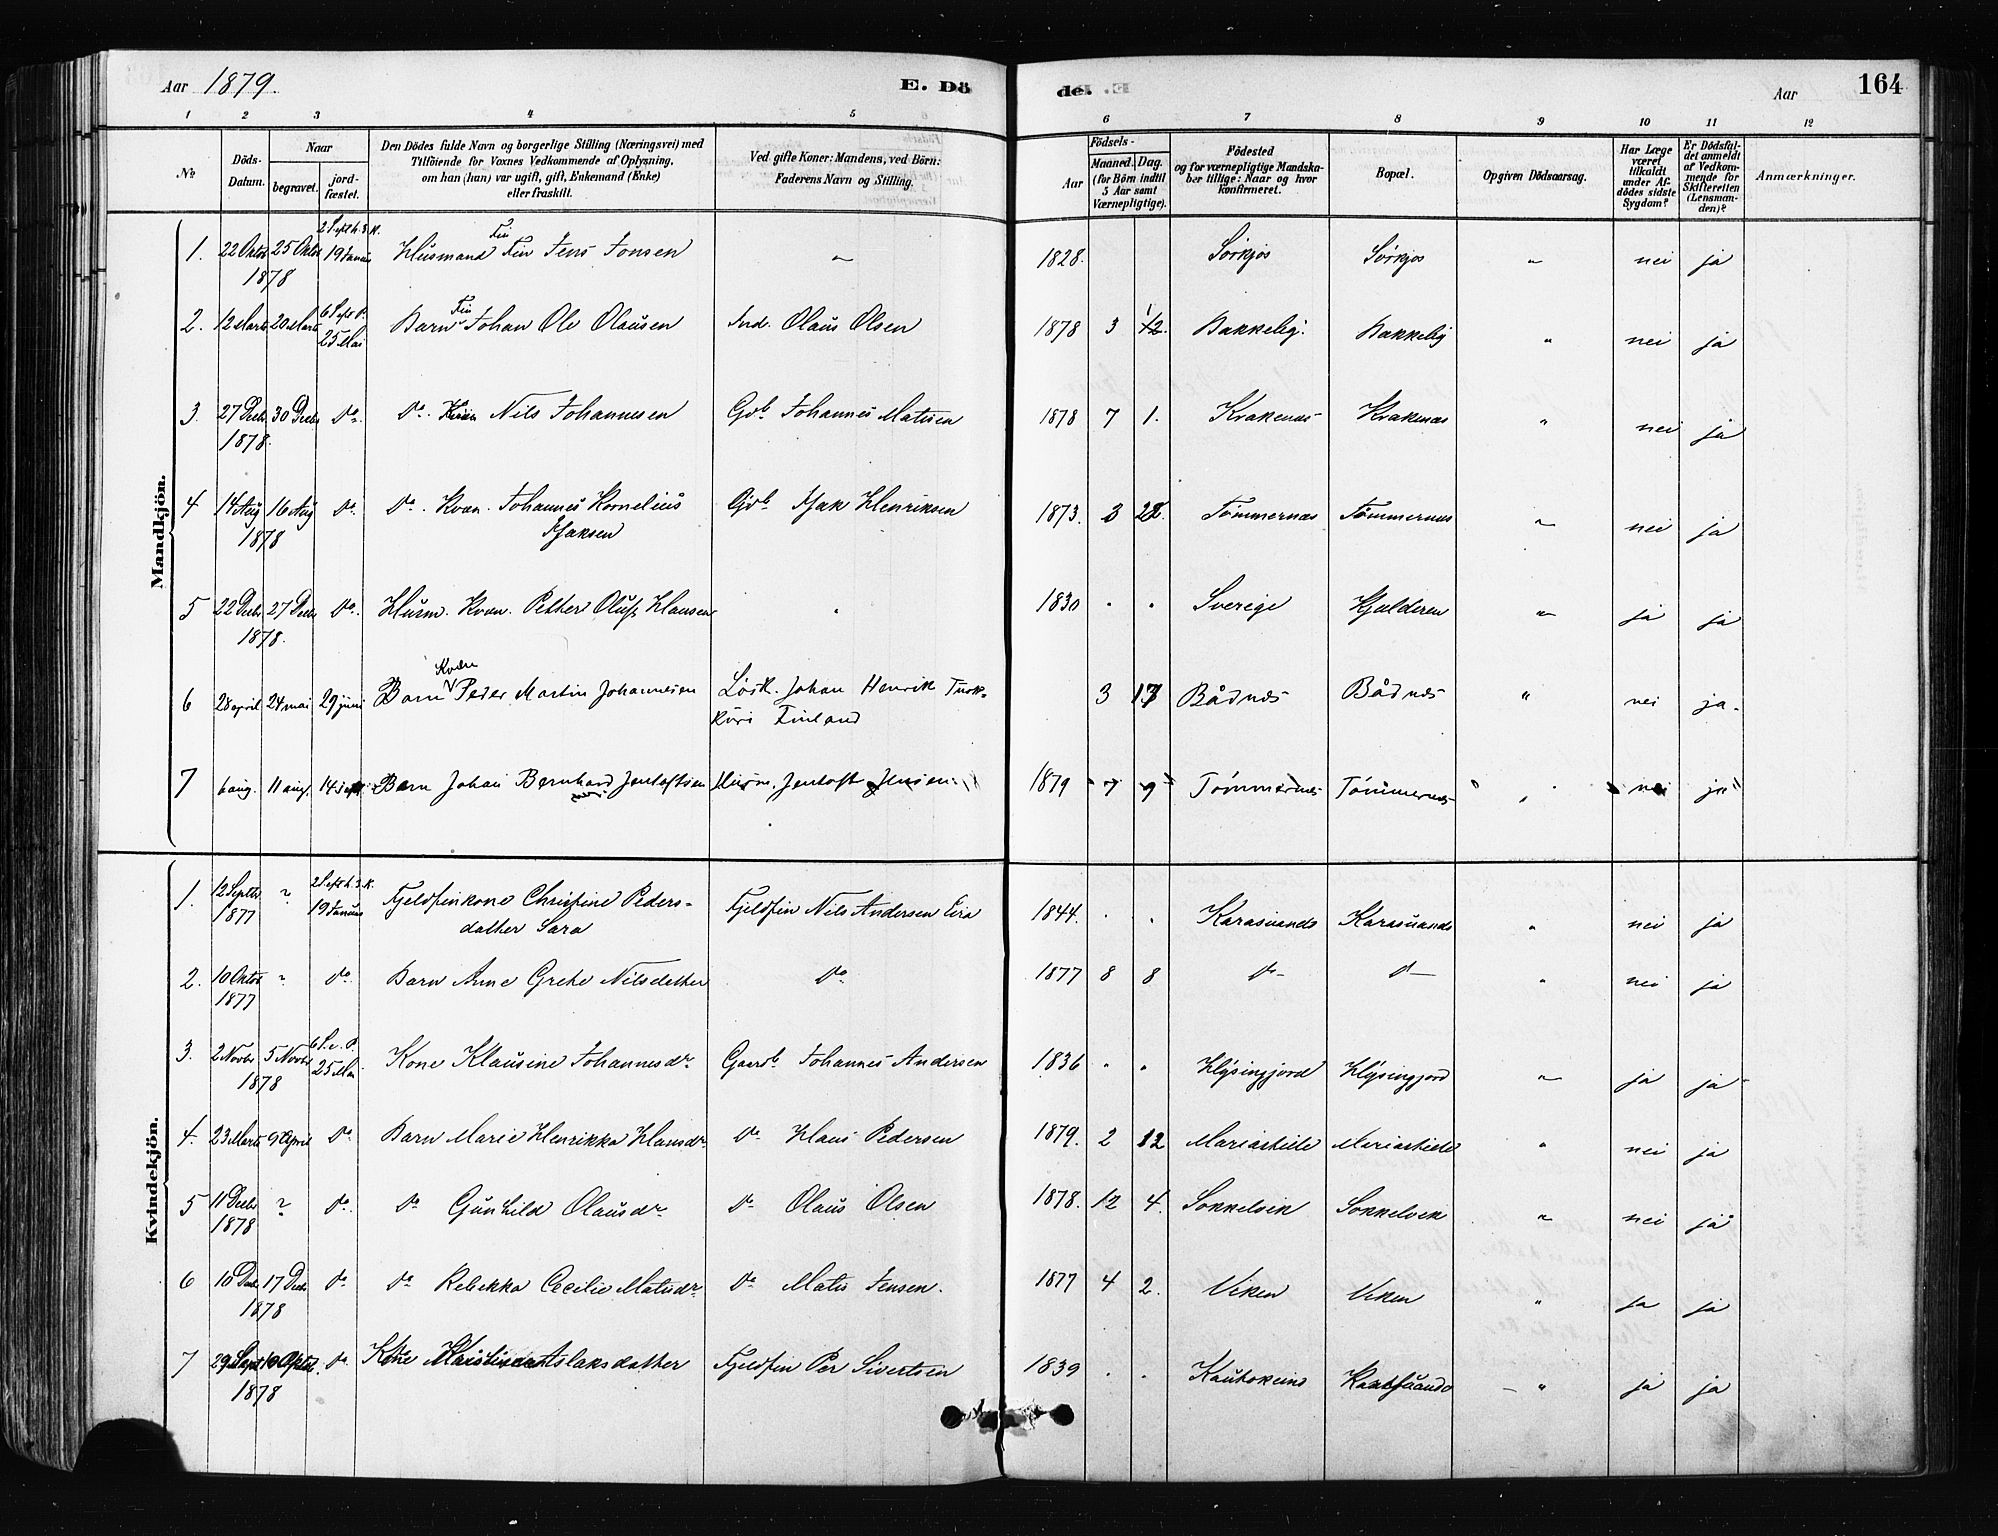 Aar 1879. E. Dö
de. Aar 164
1 2 3 4 5 6 7 8 9 10 11 12
№ Döds-Datum. Naar begravet. jord-fæstet. Den Dödes fulde Navn og borgerlige Stilling (Næringsvei) med Tilföiende for Voxnes Vedkommende af Oplysning, om han (hun) var ugift, gift, Enkemand (Enke) eller fraskilt. Ved gifte Koner: Mandens, ved Börn: Faderens Navn og Stilling. Födsels- Aar Maaned. Dag. (for Börn indtil 5 Aar samt Værnepligtige). Födested og for værnepligtige Mandskaber tillige: Naar og hvor konfirmeret. Bopæl. Opgiven Dödsaarsag. Har Læge været tilkaldt under Afdödes sidste Sygdom? Er Dödsfaldet anmeldt af Vedkommende for Skifteretten (Lensmanden)? Anmærkninger.
Mandkjön.
1. 22 Oktob 1878 25 Oktob 2 S eft h. 3 K. 19 Januar Husmand Fin Jens Jonsen " 1828. Sørkjos Sørkjos " nei ja
2. 12 Marts 20 Marts 6 S eft P. 25 Mai Barn Fin Johan Ole Olausen Ind. Olaus Olsen 1878 3 12. Bakkeby. Bakkeby " nei ja
3. 27 Decbr 1878. 30 Decbr do. do. Kvæn Nils Johannesen Gvb. Johannes Matisen 1878 7 1. Krakenæs Krakenæs " nei ja
4 14 Aug 1878 16 Aug do. do. Kvæn. Johannes Kornelius Isaksen Gvb. Isak Henriksen 1873. 3 22. Tømmernæs Tømmernæs " nei ja
5 22 Decbr 1878. 27 Decbr do. Husm. Kvæn. Petter Oluf Hansen " 1830 " " Sverige Kjelderen " ja ja
6 28 april 24 mai 29 juni Barn Kvæn Peder Martin Johannesen Løsk. Johan Henrik Turkkuri Finland 3 17 Bådnes Bådnes " nei ja.
7 6 aug. 11 aug. 14 sept Barn Johan Bernhard Jentoftsen Husm. Jentoft Jensen 1879 7 9 Tømmernes Tømmernes " nei ja
Kvindekjön.
1. 12 Septbr 1877 ? 2 S eft h. 3 K. 19 Januar Fjeldfinkone Christine Pedersdatter Sara Fjeldfin Nils Andersen Eira 1844. " " Karasuando Karasuando " nei ja
2. 10 Oktob 1877 ? do. Barn Anne Grete Nilsdatter do 1877 8 8 do do " nei ja
3. 2 Novbr 1878 5 Novbr 6 S. e. P. 25 Mai Kone Klausine Johannesdr Gaardb. Johannes Andersen 1836 " " Hysingjord Hysingjord " ja ja
4. 23 Marts 9 April do Barn Marie Henrikka Hansdr do. Hans Pedersen 1879. 2 12 Mariastilde Mariastilde " nei ja
5 11 Decbr 1878 ? do. do Gunhild Olausdr do Olaus Olsen 1878. 12 4. Sokkelvik Sokkelvik " nei ja
6 10 Decbr 1878 17 Decbr do do Rebekka Cecilie Matisdr do Matis Jensen. 1877 4 2. Viken Viken " ja ja
7 29 Sept 1878 10 Oktob. do. Kone Aslaksdatter Fjeldfin Per Sivertsen 1839 " " Kautokeino " ja ja